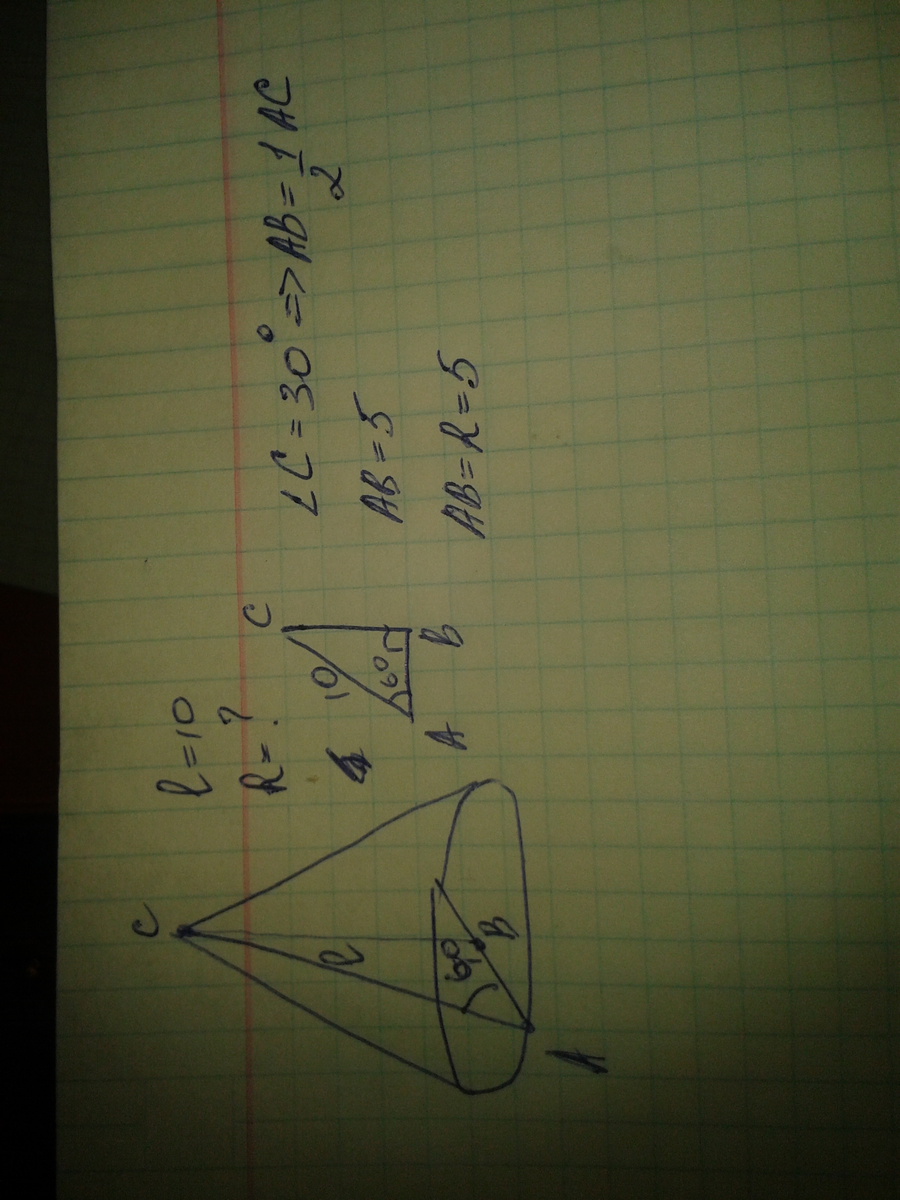 l = 10
R = ?
C
l
60°
B
A
C
10
60
A
B
∠C = 30° => AB = 1/2 AC
AB = 5
AB = R = 5